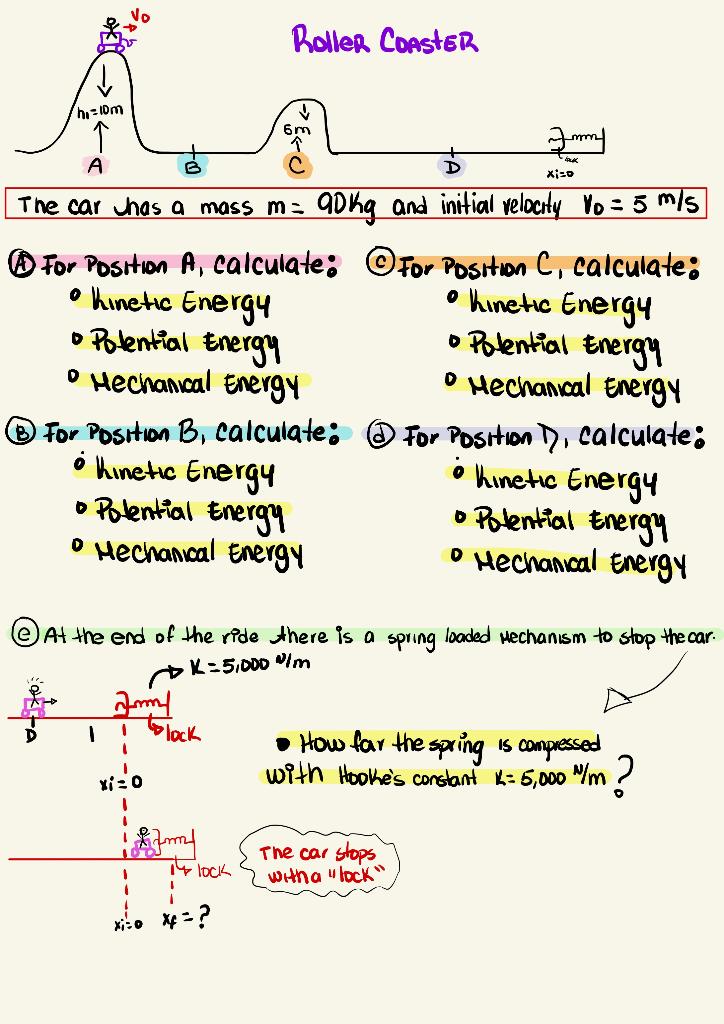 Roller Coaster
V0
h1=10m
6m
A
B
C
D
lock
xi=0
The car has a mass m= 90Kg and initial velocity V0 = 5 m/s
A For Position A, Calculate:
• Kinetic Energy
• Potential Energy
• Mechanical Energy
B For Position B, Calculate:
• Kinetic Energy
• Potential Energy
• Mechanical Energy
C For Position C, Calculate:
• Kinetic Energy
• Potential Energy
• Mechanical Energy
d For Position D, Calculate:
• Kinetic Energy
• Potential Energy
• Mechanical Energy
e At the end of the ride there is a spring loaded mechanism to stop the car.
K=5,000 N/m
D
lock
xi=0
• How far the spring is compressed
with Hooke's constant K=5,000 N/m ?
lock
The car stops
with a "lock"
xi=0
xf=?